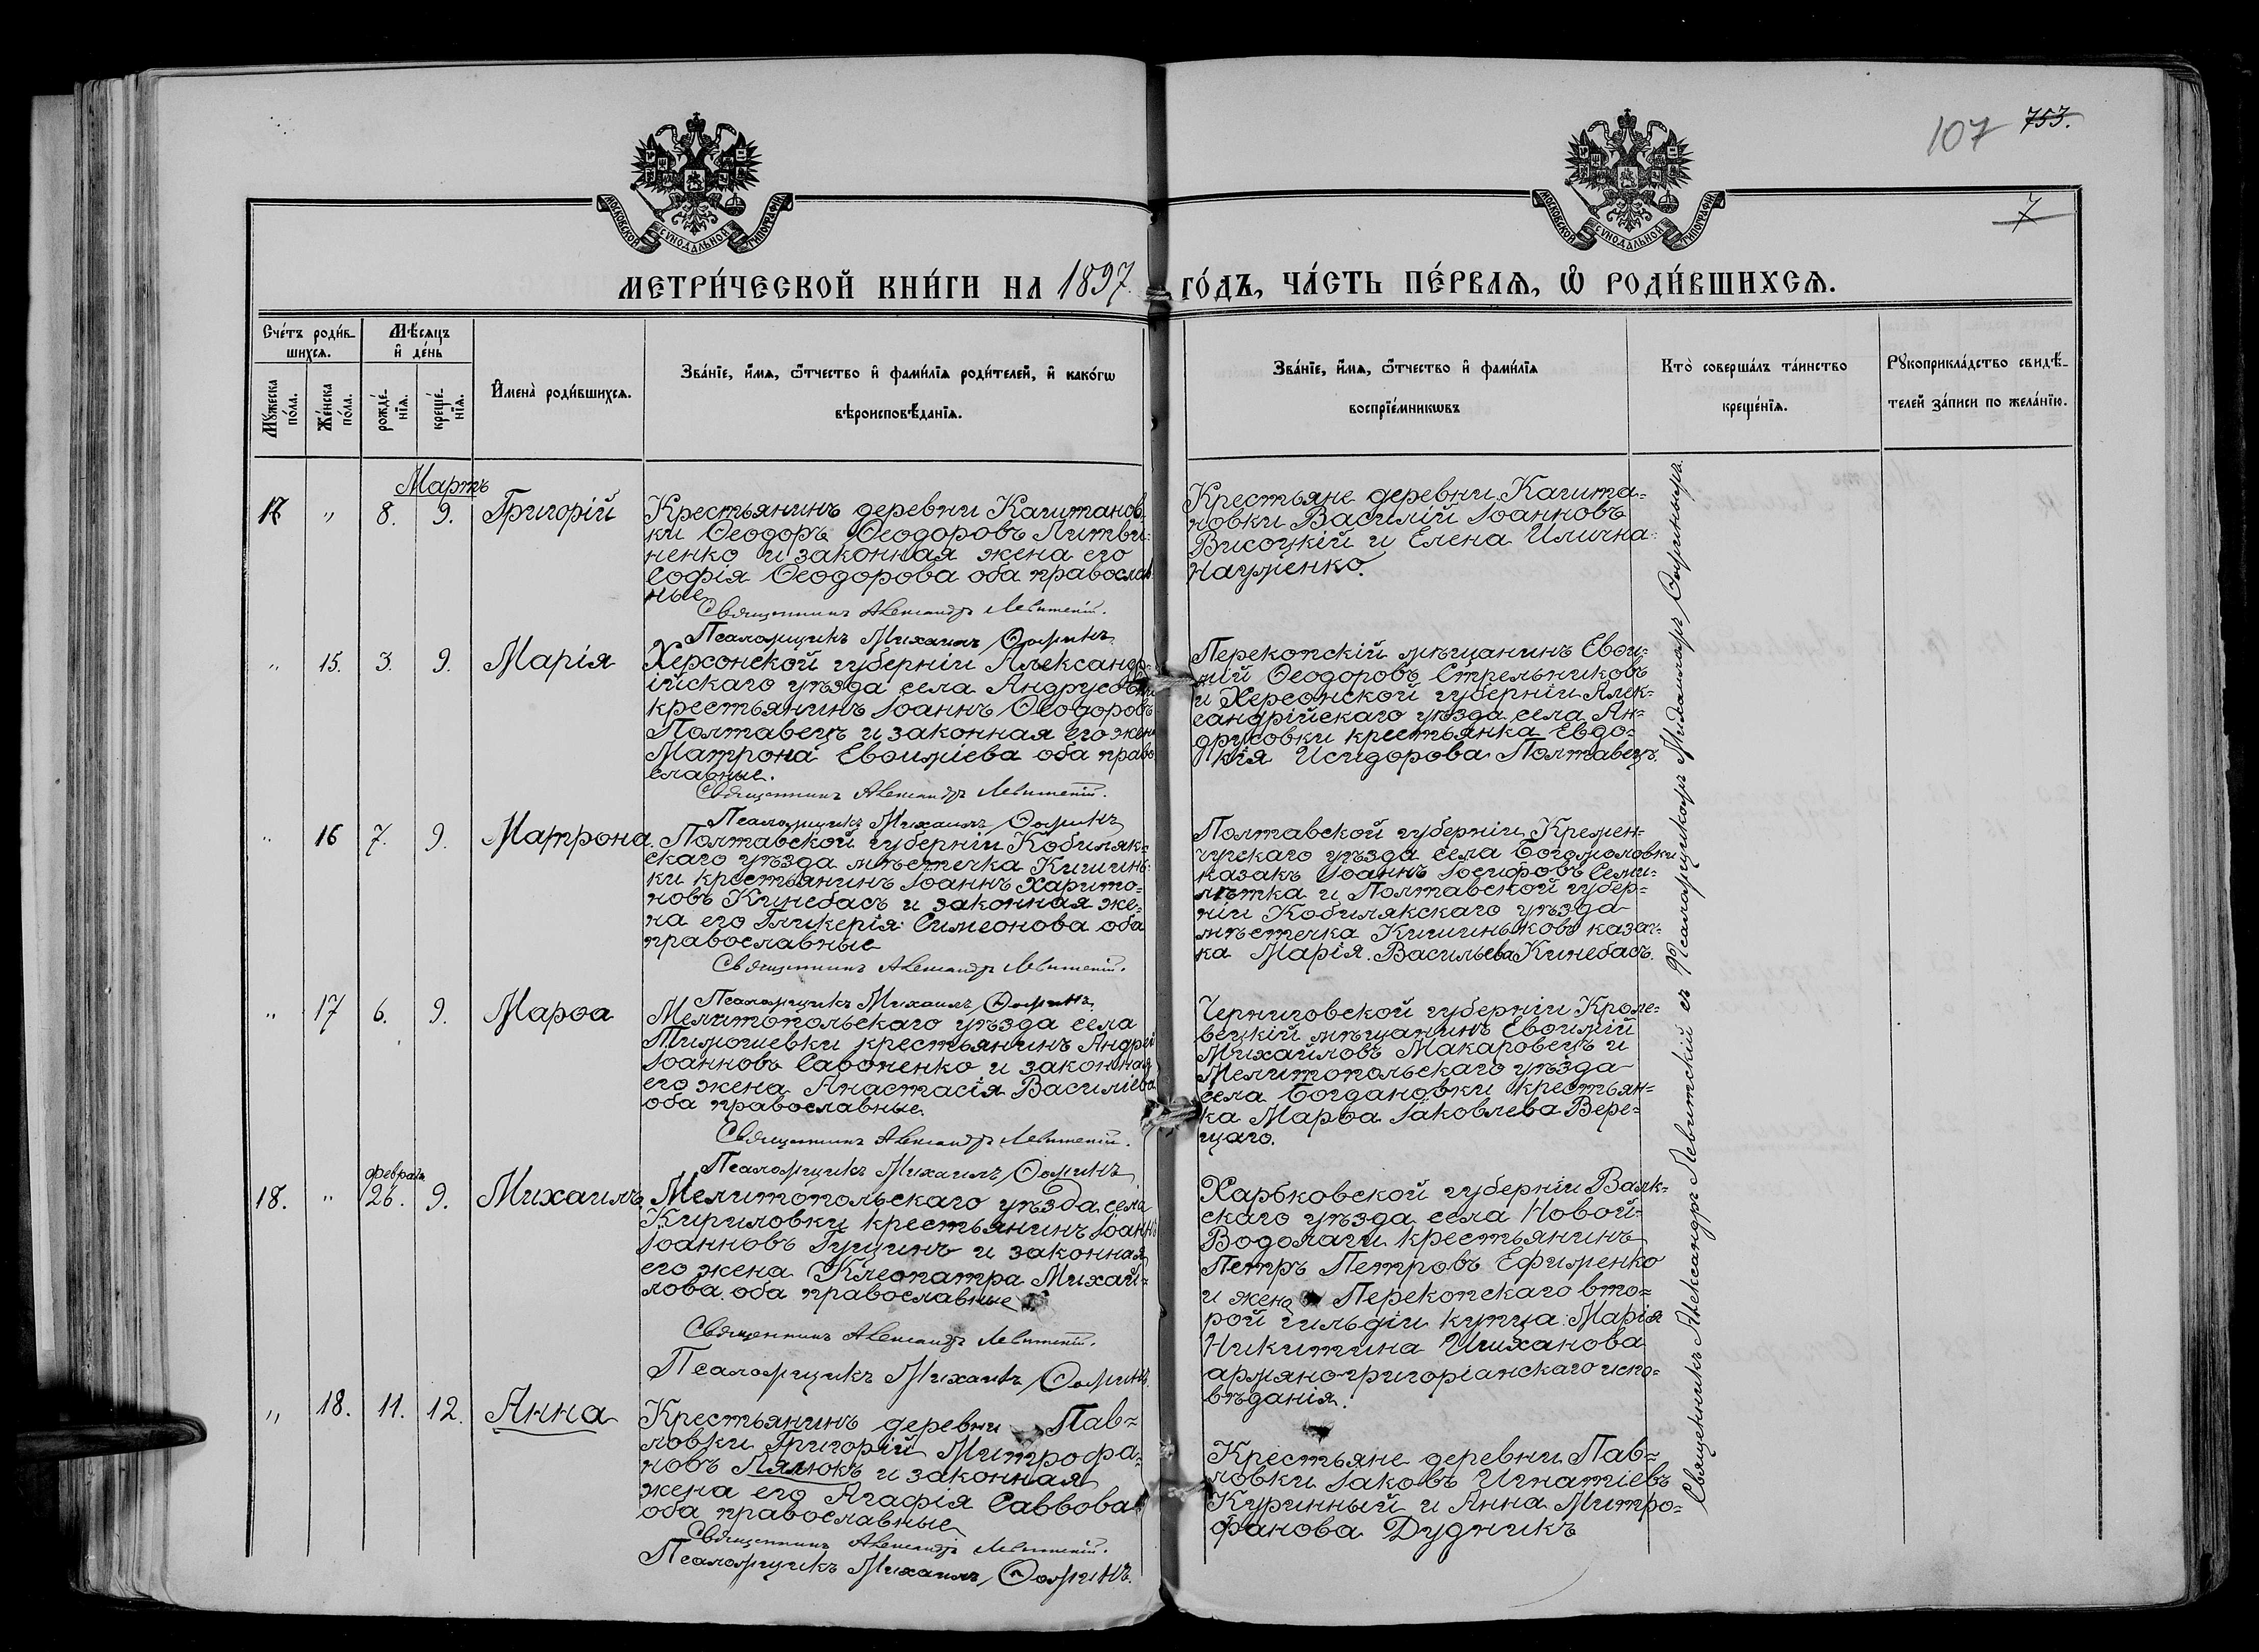 107 753.
7
МОСКОВСКОЙ СУНОДАЛЬНОЙ ТИПОГРАФІИ
МОСКОВСКОЙ СУНОДАЛЬНОЙ ТИПОГРАФІИ
МЕТРИ́ЧЕСКОЙ КНИ́ГИ НА 1897. ГО́ДЪ, ЧА́СТЬ ПЕ́РВАѦ, Ѡ҆ РОДИ́ВШИХСѦ.
Сче́тъ роди́в-
шихсѧ.
Мѣ́сѧцъ
и҆ де́нь
Мꙋ́жеска
по́ла.
Же́нска
по́ла.
рожде́-
нїѧ.
креще́-
нїѧ.
И҆мена̀ роди́вшихсѧ.
Зва́нїе, и҆́мѧ, ѻ҆́тчество и҆ фами́лїѧ роди́телей, и҆ како́гѡ
вѣроисповѣ́данїѧ.
Зва́нїе, и҆́мѧ, ѻ҆́тчество и҆ фами́лїѧ
воспрїе́мникѡвъ
Кто̀ соверша́лъ та́инство
креще́нїѧ.
Рꙋкоприкла́дство свидѣ́-
телей за́писи по жела́нїю.
Мартъ
17 " 8. 9. Григорій
Крестьянинъ деревни Каштанов-
ки Ѳеодоръ Ѳеодоровъ Литви-
ненко и законная жена его
Софія Ѳеодорова оба православ-
ные
Священникъ Александръ Левитскій.
Псаломщикъ Михаилъ Ѳоминъ
Крестьяне деревни Кашта-
новки Василій Іоанновъ
Висоцкій и Елена Илична
Науменко.
" 15. 3. 9. Марія
Херсонской губерніи Александр-
ійскаго уѣзда села Андрусовки
крестьянинъ Іоаннъ Ѳеодоровъ
Полтавецъ и законная его жена
Матрона Евѳиміева оба право-
славные.
Священникъ Александръ Левитскій.
Псаломщикъ Михаилъ Ѳоминъ
Перекопскій мѣщанинъ Евѳи-
мій Ѳеодоровъ Стрельниковъ
и Херсонской губерніи Алек-
сандрійскаго уѣзда села Ан-
друсовки крестьянка Евдо-
кія Исидорова Полтавецъ.
" 16 7. 9. Матрона.
Полтавской губерніи Кобиляк-
скаго уѣзда мѣстечка Кишинь-
ки крестьянинъ Іоаннъ Харито-
новъ Кинебасъ и законная же-
на его Гликерія Симеонова оба
православные
Священникъ Александръ Левитскій.
Псаломщикъ Михаилъ Ѳоминъ
Полтавской губерніи Кремен-
чугскаго уѣзда села Богомоловки
казакъ Іоаннъ Іосифовъ Семи-
лѣтка и Полтавской губер-
ніи Кобилякскаго уѣзда
мѣстечка Кишиньковъ казач-
ка Марія Васильева Кинебасъ.
" 17 6. 9. Марѳа
Мелитопольскаго уѣзда села
Тимошевки крестьянинъ Андрей
Іоанновъ Сафоненко и законная
его жена Анастасія Василіева
оба православные.
Священникъ Александръ Левитскій.
Псаломщикъ Михаилъ Ѳоминъ
Черниговской губерніи Кроле-
вецкій мѣщанинъ Евѳимій
Михайловъ Макаровецъ и
Мелитопольскаго уѣзда
села Богдановки крестьян-
ка Марѳа Іаковлева Вере-
щаго.
февраль
18. " 26. 9. Михаилъ
Мелитопольскаго уѣзда села
Кириловки крестьянинъ Іоаннъ
Іоанновъ Гущинъ и законная
его жена Клеопатра Михай-
лова оба православные
Священникъ Александръ Левитскій.
Псаломщикъ Михаилъ Ѳоминъ.
Харьковской губерніи Валк-
скаго уѣзда села Новой-
Водолаги крестьянинъ
Петръ Петровъ Ефименко
и жена Перекопскаго вто-
рой гильдіи купца Марія
Никитина Шиханова
армяно-григоріанскаго испо-
вѣданія.
" 18. 11. 12. Анна
Крестьянинъ деревни Пав-
ловки Григорій Митрофа-
новъ Лялюкъ и законная
жена его Агафія Саввова
оба православные
Священникъ Александръ Левитскій.
Псаломщикъ Михаилъ Ѳоминъ.
Крестьяне деревни Пав-
ловки Іаковъ Игнатіевъ
Куринный и Анна Митро-
фанова Дудникъ
Священникъ Александръ Левитскій съ Псаломщикомъ Михаиломъ Ѳоминымъ.